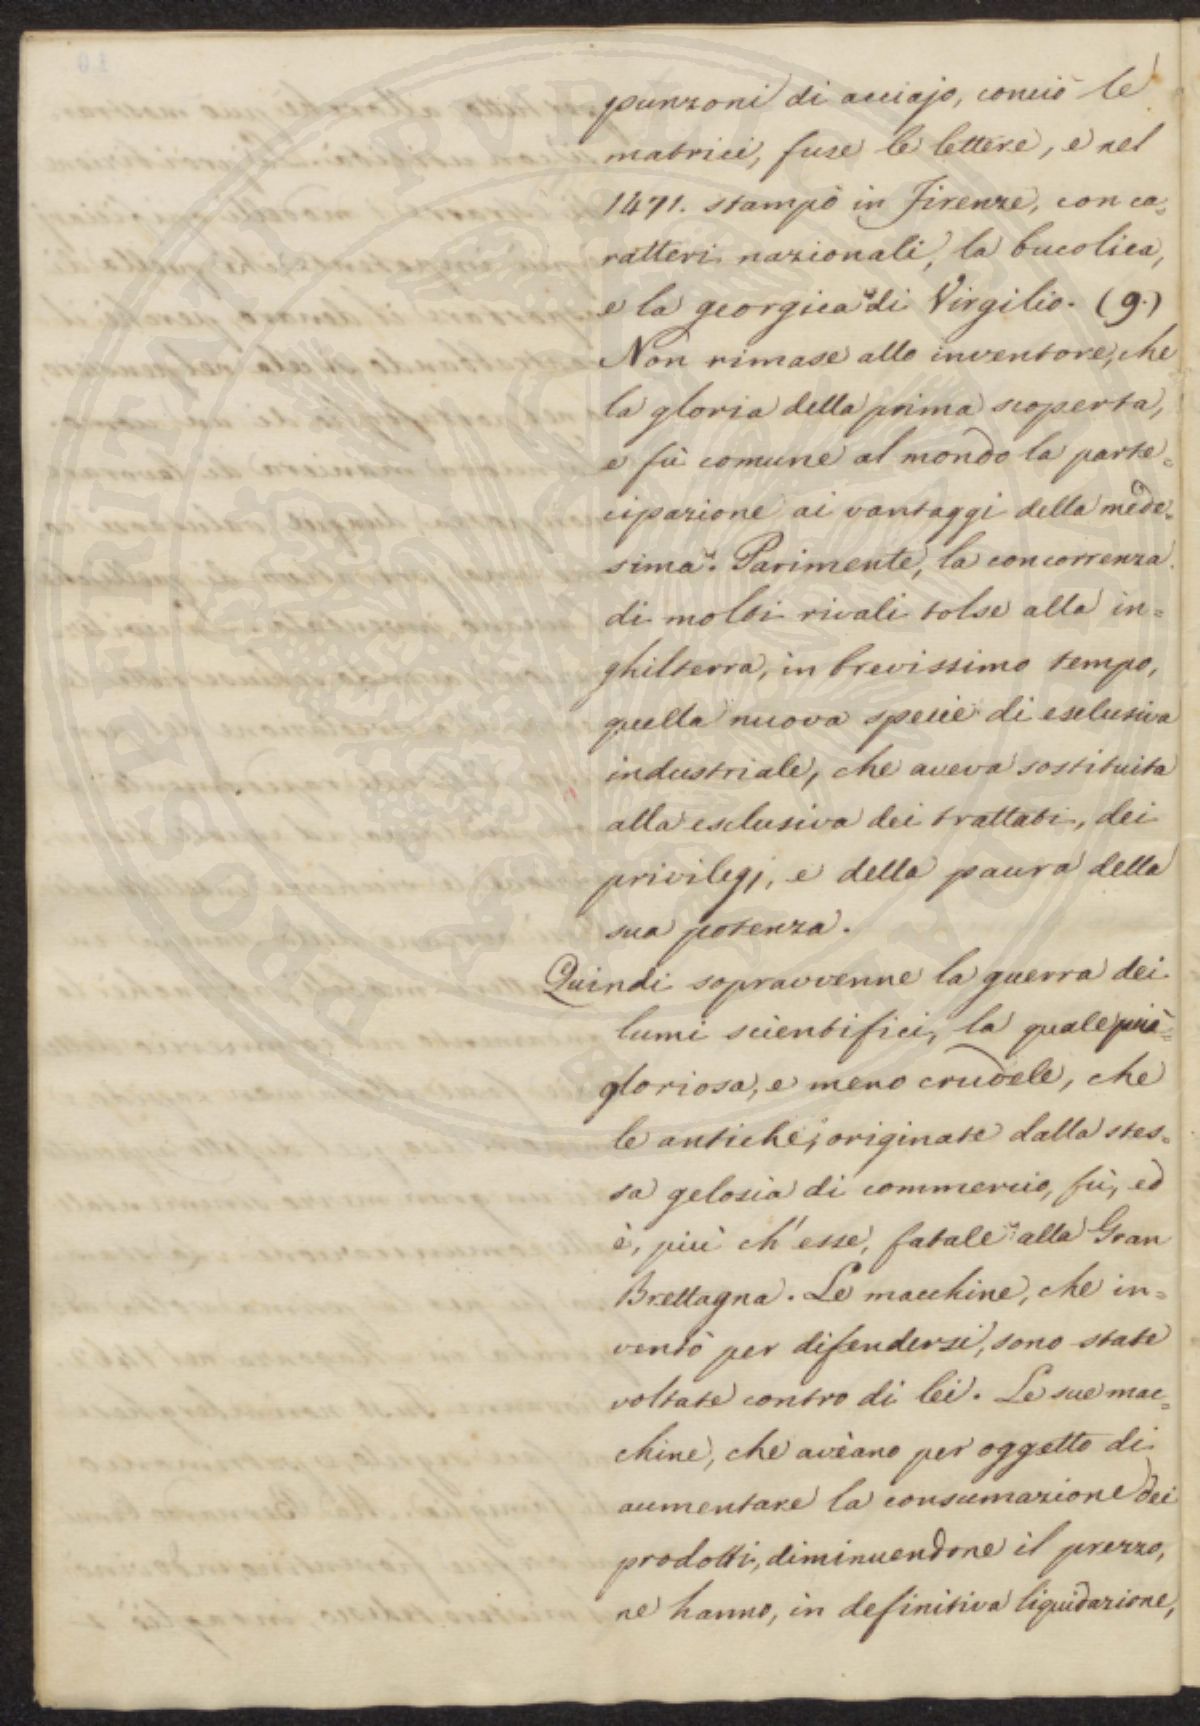 punzoni di acciajo, conciò le
matrici, fuse le lettere, e nel
1471. stampò in Firenze, con ca=
ratteri nazionali, la bucolica,
e la georgica di Virgilio. (9.)
Non rimase allo inventore, che
la gloria della prima scoperta,
e fù comune al mondo la parte=
cipazione ai vantaggi della mede=
sima. Parimente, la concorrenza
di molti rivali tolse alla in=
ghilterra, in brevissimo tempo,
quella nuova specie di esclusiva
industriale, che aveva sostituita
alla esclusiva dei trattati, dei
privilegj, e della paura della
sua potenza.
Quindi sopravvenne la guerra dei
lumi scientifici, la quale più
gloriosa, e meno crudele, che
le antiche, originate dalla stes=
sa gelosia di commercio, fù, ed
è, più ch'esse, fatale alla Gran
Brettagna. Le macchine, che in=
ventò per difendersi, sono state
voltate contro di lei. Le sue mac=
chine, che avèano per oggetto di
aumentare la consumazione dei
prodotti, diminuendone il prezzo,
ne hanno, in definitiva liquidazione,